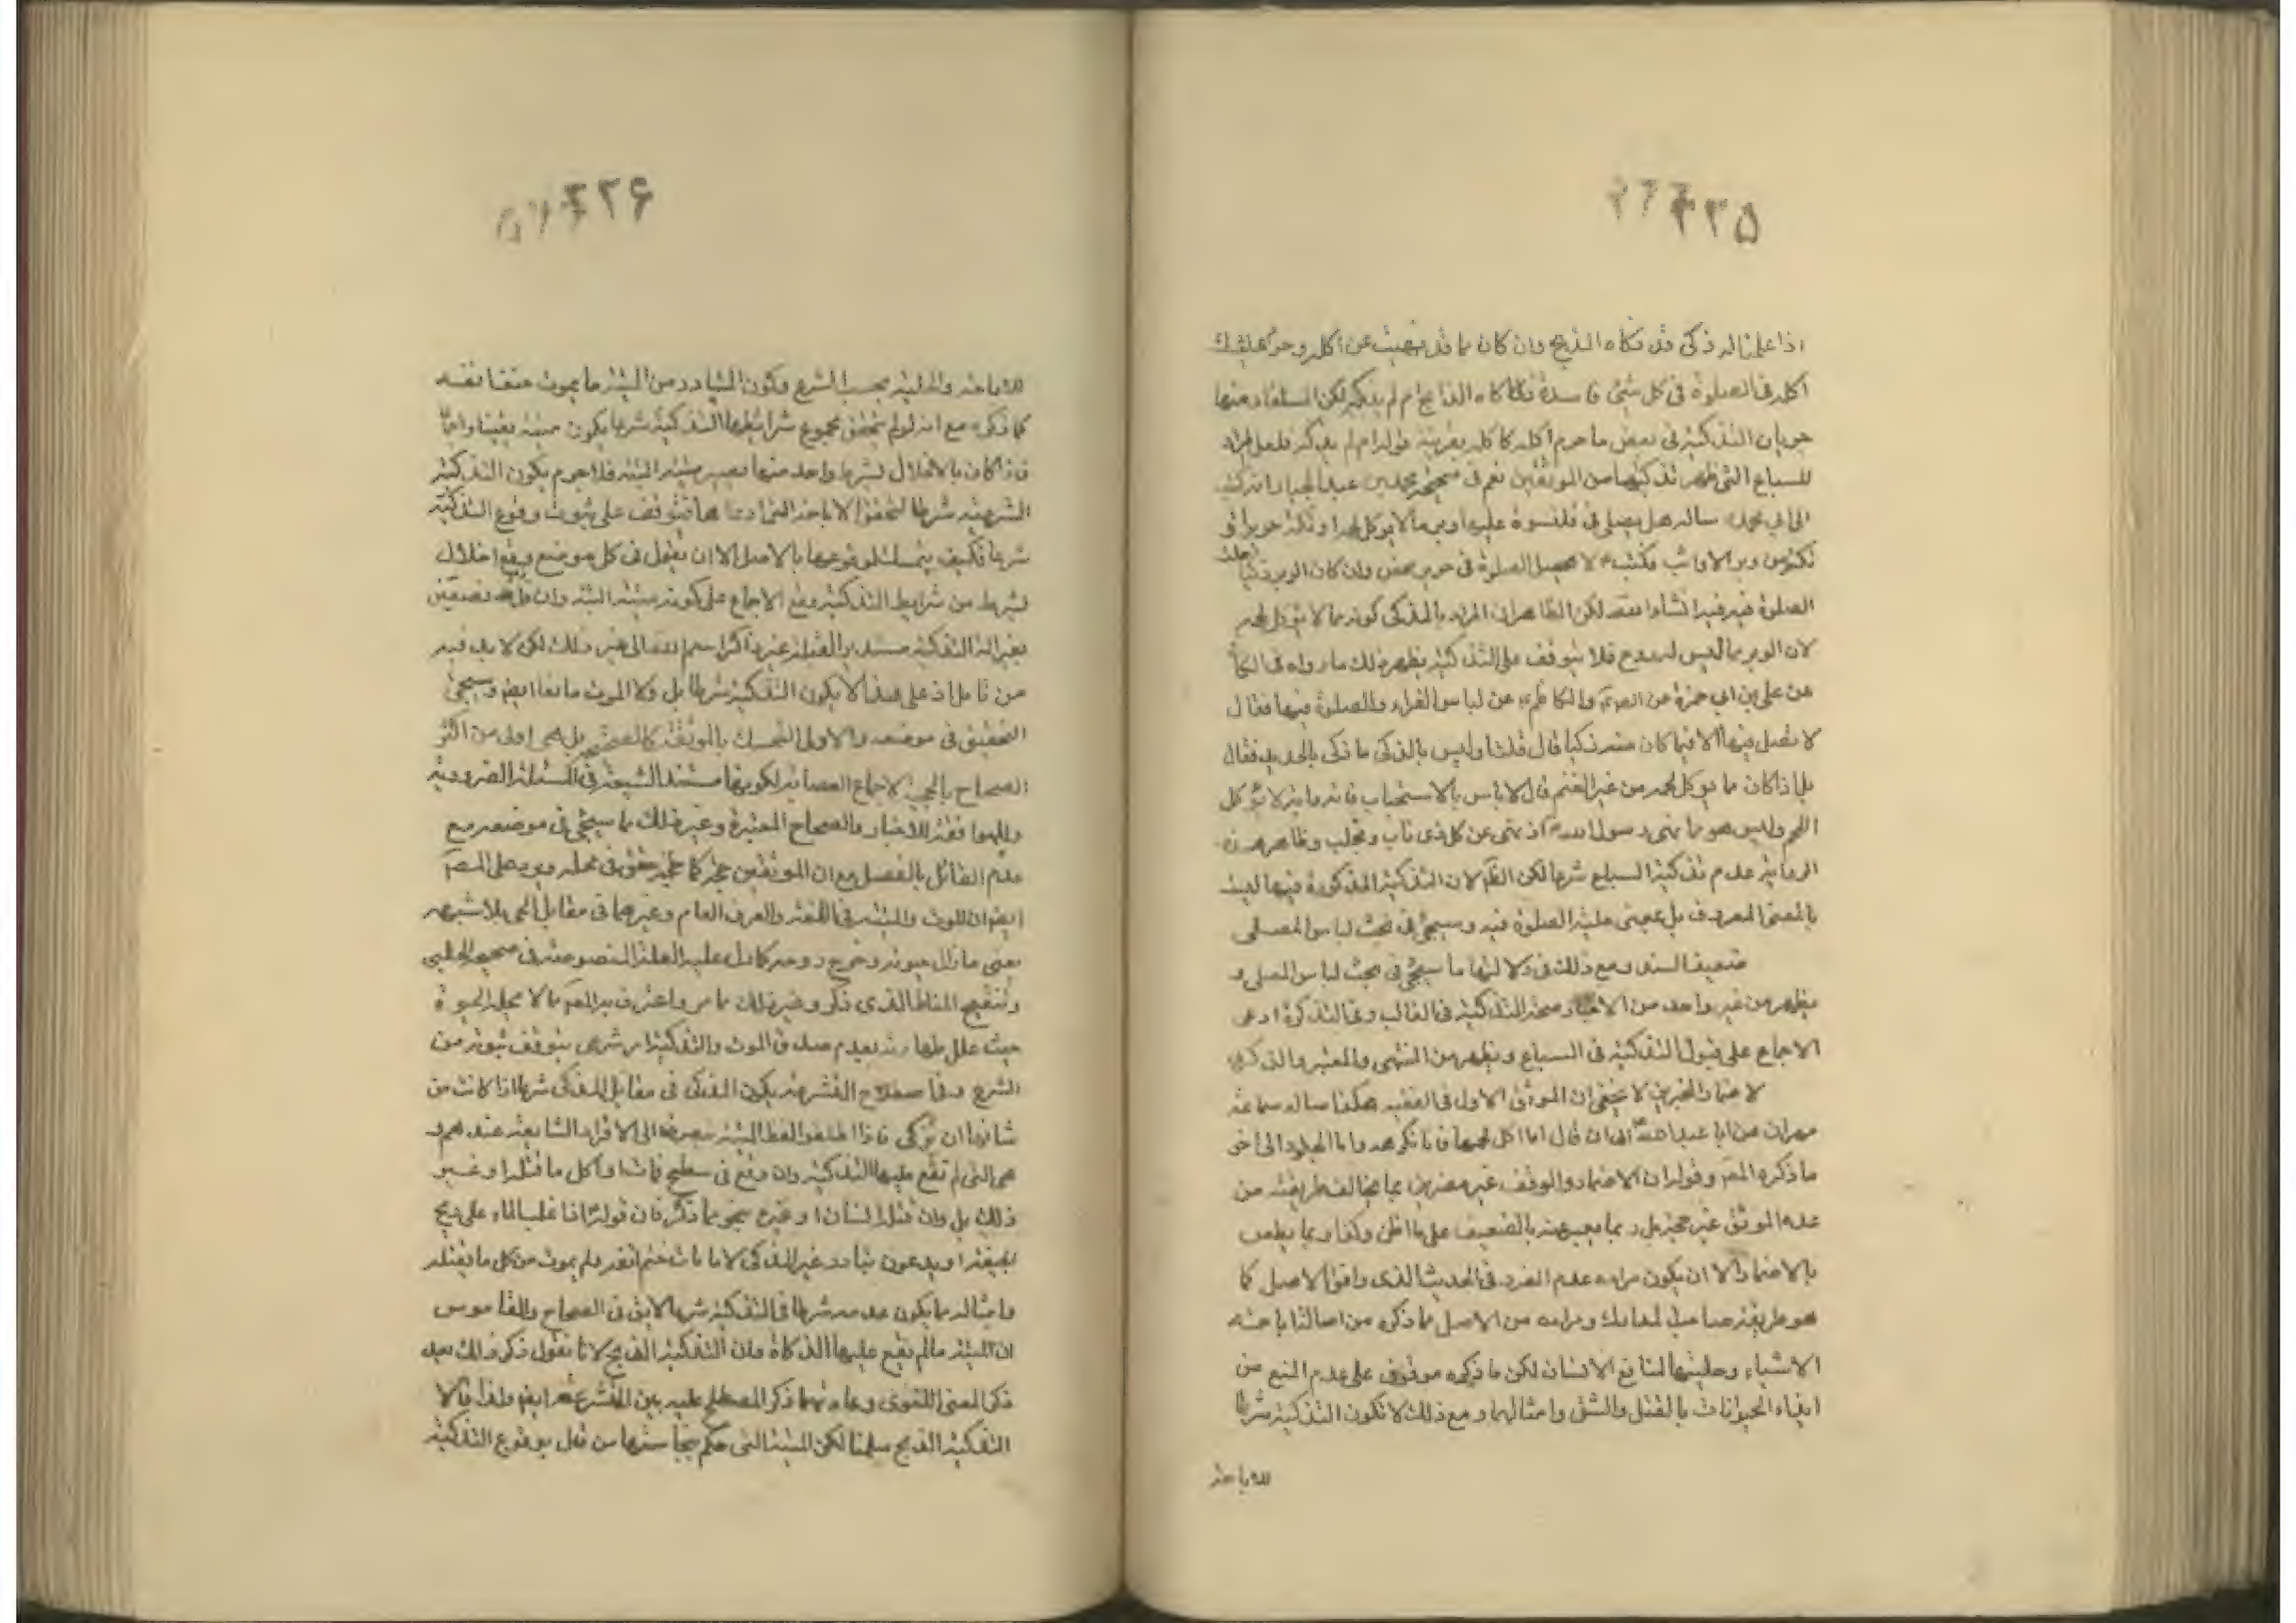 ۳۳۵
اذا علمت انه ذكى قد ذكاه الذبح وان كان مما قد نهيت عن اكله وحرم عليك
اكله فالصلوة فى كل شئ فاسدة ذكاه الذابح ام لم يذكه لكن المستفاد منها
جريان التذكية فى بعض ما حرم اكله كالكلب بقرينة قوله ام لم يذكه فلعل المراد
للسباع التى ظهر تذكيتها من الموثقين نعم فى صحيحة محمد بن عبد الجبار انه كتب
الى ابى محمد ساله هل يصلى فى قلنسوة عليها وبر ما لا يوكل لحمه او تكة حرير او
تكة من وبر الارانب فكتب لا تحل الصلوة فى حرير محض وان كان الوبر ذكيا حلت
الصلوة فيه فيه انشاء الله لكن الظاهر ان المراد بالمذكى كونه مما لا يوكل لحمه
لان الوبر مما ليس له روح فلا يتوقف على التذكية يظهر ذلك ما رواه فى الكا
عن على بن ابى حمزة عن الصم والكاظم عن لباس الفراء والصلوة فيها فقال
لا تصل فيها الا فيما كان منه ذكيا قال قلت اوليس بالذكى ما ذكى بالحديد فقال
بلى اذا كان ما يوكل لحمه من غير الغنم قال لا باس بالاستجاب فانه دابة لا توكل
اللحم وليس هو مما نهى رسول الله اذ نهى عن كل ذى ناب ومخلب وظاهر هذه
الرواية عدم تذكية السباع شرعا لكن الظم لان التذكية المذكورة فيها ليست
بالمعنى المعروف بل بمعنى حلية الصلوة فيه وسيجئ فى بحث لباس المصلى
ضعيف السند ومع ذلك فى دلالتها ما سيجئ فى بحث لباس المصلى و
يظهر من غير واحد من الاخبار صحة التذكية فى الغالب وفى التذكرة ادعى
الاجماع على قبول التذكية فى السباع ويظهر من المنتهى والمعتبر والذكرى
لاعتماد الخبرين لا يخفى ان الموثق الاول فى الفقيه هكذا ساله سماعة
مهران عن ابا عبد الله الى ان قال اما اكل لحمها فانا نكرهه واما الجلود الى اخر
ما ذكره المص وقوله ان الاضمار والوقف غير مضرين مما يخالف طريقته من
عده الموثق غير حجة بل ربما يعبر عنه بالضعيف على ما اظن وكذا ربما يطعن
بالاضمار الا ان يكون مراده عدم الضرر فى الحديث الذى وافق الاصل كما
هو طريقة صاحب المدارك ومراده من الاصل ما ذكره من اصالة اباحة
الاشياء وحليتها لمنافع الانسان لكن ما ذكره موقوف على عدم المنع من
ايذاء الحيوانات بالقتل والشق وامثالهما ومع ذلك لا تكون التذكية شرطا
للاباحة
۳۳۶
للاباحة والحلية بحسب الشرع وكون المتبادر من الميتة ما يموت حتف انفه
كما ذكره مع انه لو لم يتحقق مجموع شرائط التذكية شرعا يكون ميتة يقينا واجماعا
فاذا كان بالاخلال لشرط واحد منها يصير ميتة البتة فلا جرم يكون التذكية
الشرعية شرطا لتحقق الاباحة التى ادعاها فيتوقف على ثبوت وقوع التذكية
شرعا فكيف يتمسك لوقوعها بالاصل الا ان تقول فى كل موضع وقع اخلال
بشرط من شرايط التذكية وقع الاجماع على كونه ميتة البتة وان
بغير الة التذكية مستدبر القبلة غير ذاكر اسم الله الى غير ذلك لكن لا بد فيه
من تامل اذ على هذا لا يكون التذكية شرطا بل ولا الموت مانعا ايضا وسيجئ
التحقيق فى موضعه والاولى التمسك بالموثقة كالصحيح بل هى اولى من اكثر
الصحاح بالحجية لاجماع العصابة لكونهما مستند الشيعة فى المسئلة الضرورية
وللموافقة للاخبار والصحاح المعتبرة وغير ذلك مما سيجئ فى موضعه مع
عدم القائل بالفصل مع ان الموثقين حجة كما حقق فى محله ويرد على المص
ايضا ان الموت والميتة فى اللغة والعرف العام وغيرهما فى مقابل الحى بلا شبهة
يعنى ما زال حيوته وخرج روحه كما دل عليه العلة المنصوصة فى صحيحة الحلبى
وتنقيح المناط الذى ذكر وغير ذلك مما مر واعترف به المص مما لا يحله الحيوة
حيث علل طهارته بعدم صدق الموت والتذكية امر شرعى يتوقف ثبوته من
الشرع وفى اصطلاح المتشرعة يكون المذكى فى مقابل المذكى شرعا اذا كانت من
شانها ان يذكى فاذا اطلقوا لفظ الميتة ينصرف الى الافراد الشايعة عندهم و
هى التى لم تقع عليها التذكية وان وقع فى سطح فمات او اكل ما قتله او غير
ذلك بل وان قتله انسان او غيره بنحو ما ذكر فان قوله اذا غلب الماء على ريح
الجيفة او يدعون تبادر غير المذكى لا ما مات حتف انفه ولم يموت من كل ما يقتله
وامثاله مما يكون عدمه شرطا فى التذكية شرعا لا يق فى الصحاح والقاموس
ان الميتة ما لم يقع عليها الذكاة وان التذكية الذبح لانا نقول ذكر ذلك بعد
ذكر المعنى اللغوى وعادتهما ذكر المصطلح عليه بين المتشرعة ايضا ولذا قالا
التذكية الذبح سلمنا لكن الميتة التى حكم بنجاستها من قبل بوقوع التذكية